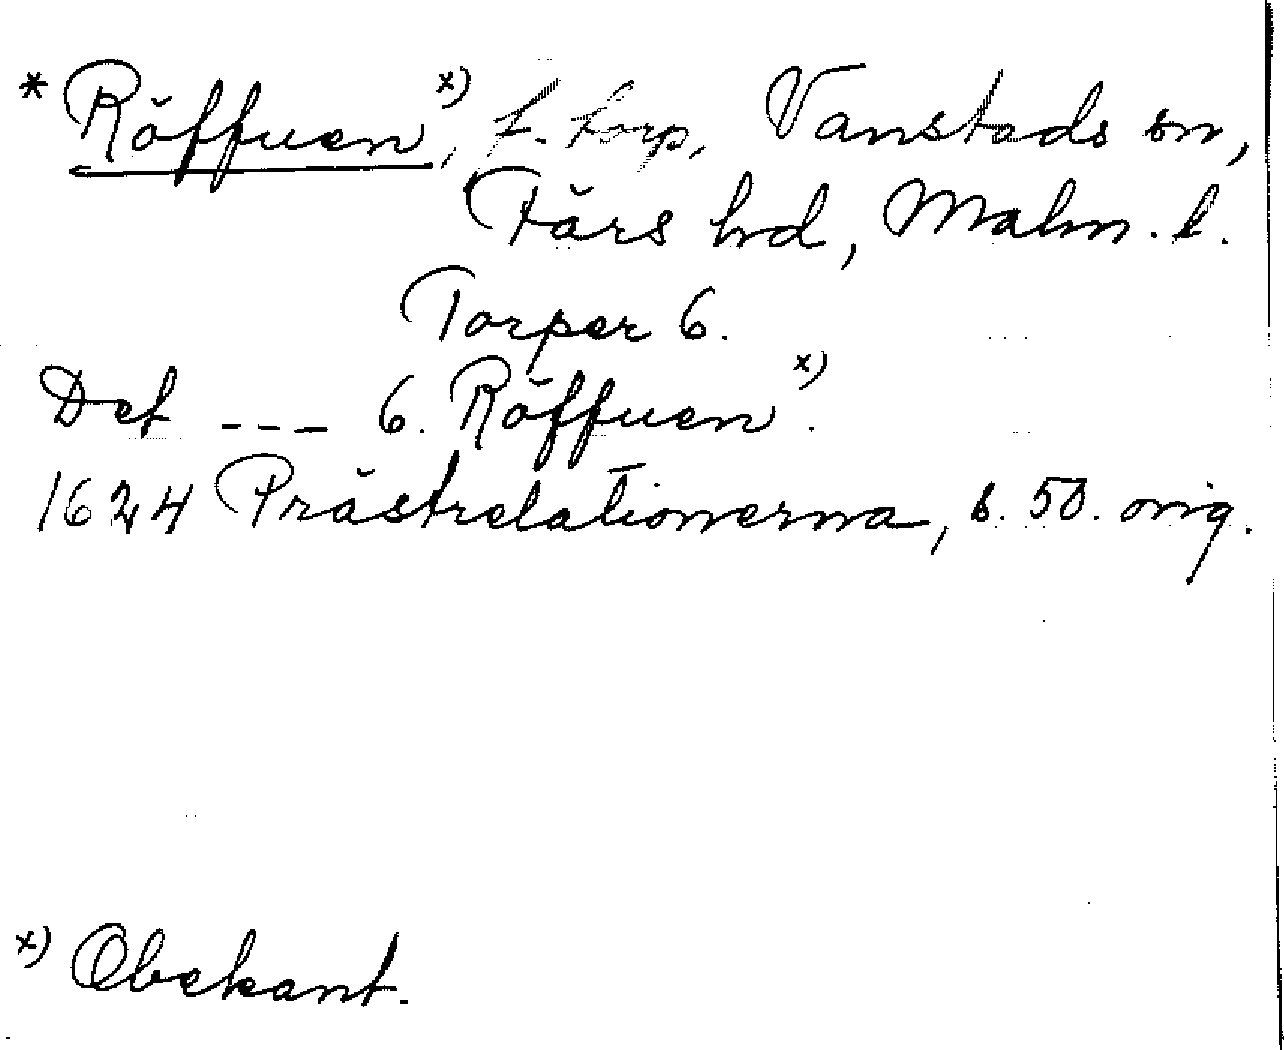 * Röffuen x), f. torp, Vanstads sn,
Färs hd, Malm. l.
Torper 6.
Det --- 6. Röffuen x).
1624 Prästrelationerna, s. 50. orig.
x) Obekant.